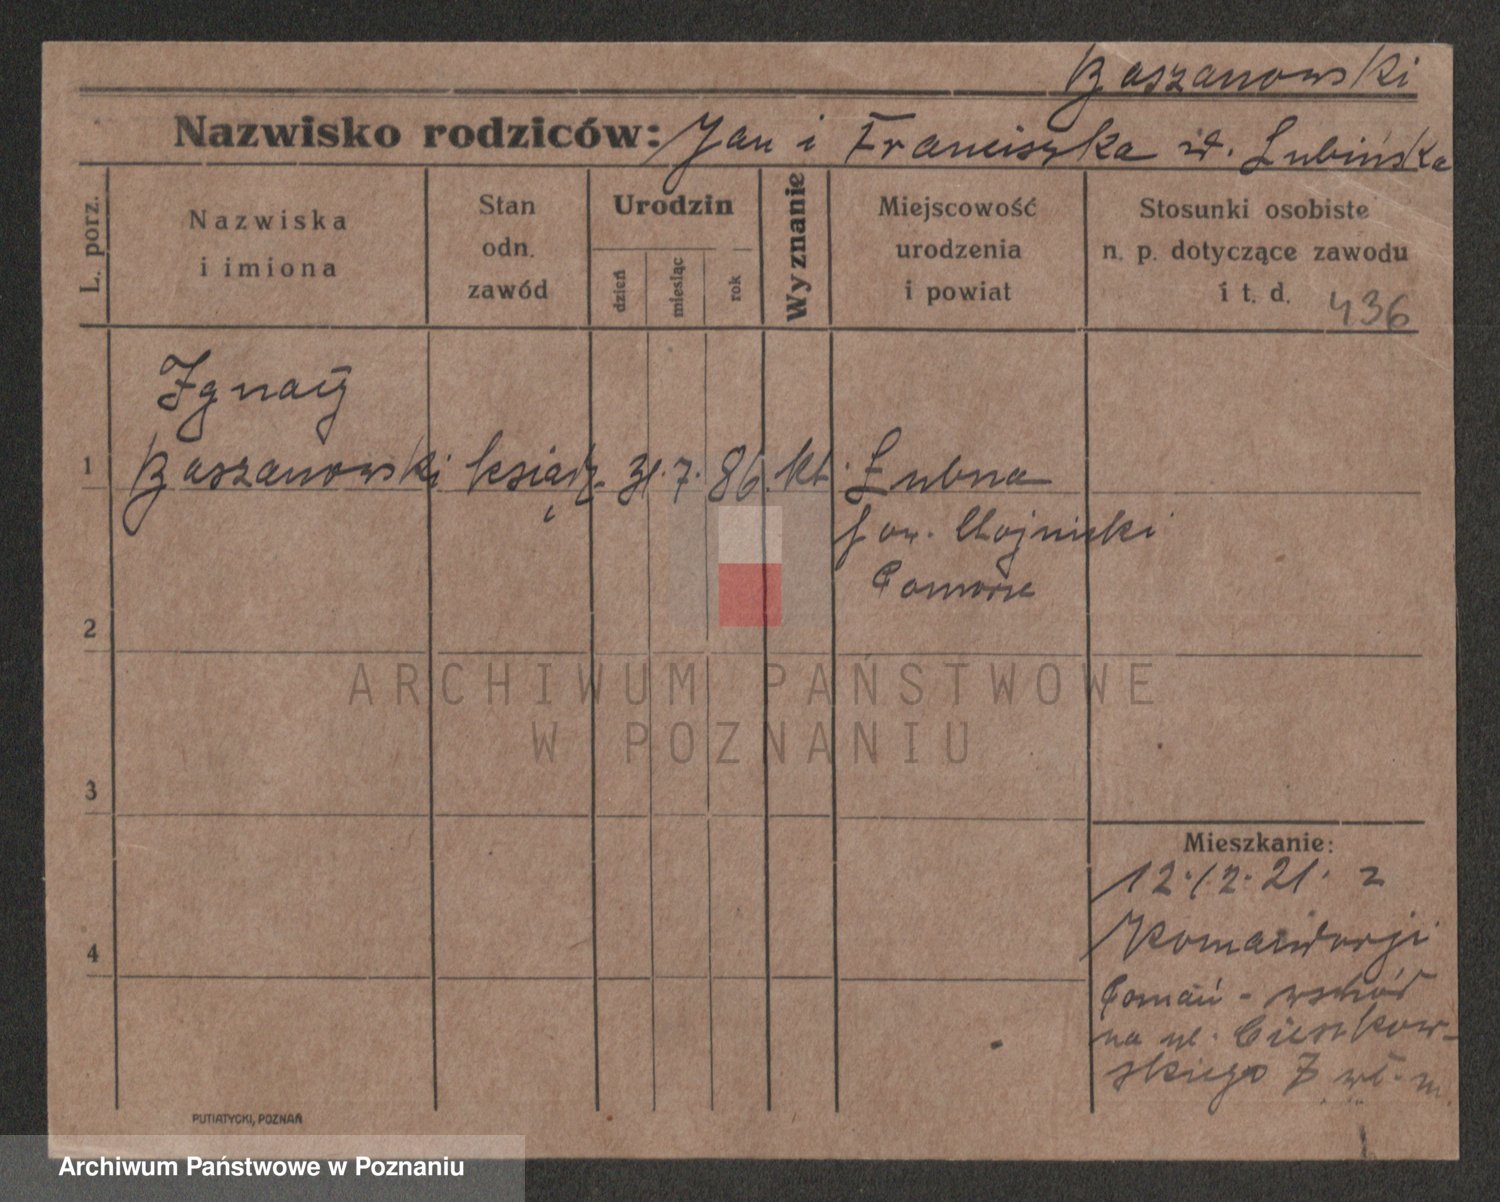 Baszanowski
Nazwisko rodziców: Jan i Franciszka id. Lubińska
L. porz.
Nazwiska
i imiona
Stan
odn.
zawód
Urodzin
dzień
miesiąc
rok
Wyznanie
Miejscowość
urodzenia
i powiat
Stosunki osobiste
n. p. dotyczące zawodu
i t. d. 436
Ignacy
1 Baszanowski ksiądz. 31. 7. 86. kt. Łubna
pow. Chojnicki
Pomorze
2
3
4
Mieszkanie:
12.12.21. z
Komandorji
Poznań - wschód
na ul. Cieszkow-
skiego 7 wł. m.
PUTIATYCKI, POZNAŃ
ARCHIWUM PAŃSTWOWE
W POZNANIU
Archiwum Państwowe w Poznaniu